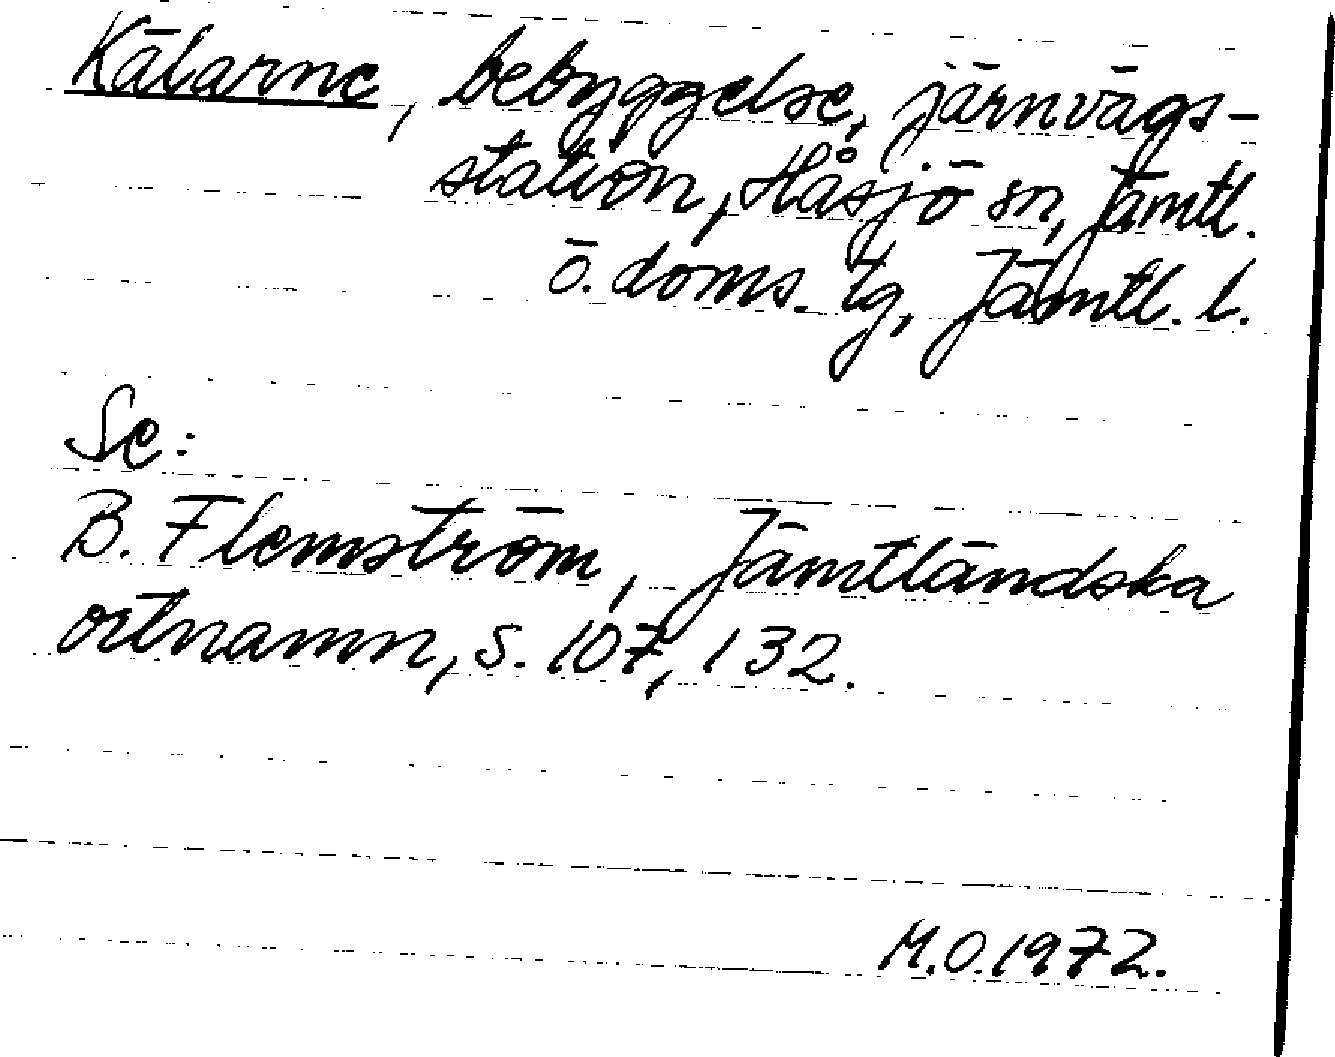 Kälarne, bebyggelse, järnvägs-
station, Håsjö sn, Jämtl.
ö. doms. tg, Jämtl. l.
Se:
B. Flemström, Jämtländska
ortnamn, s. 107, 132.
M.O. 1972.